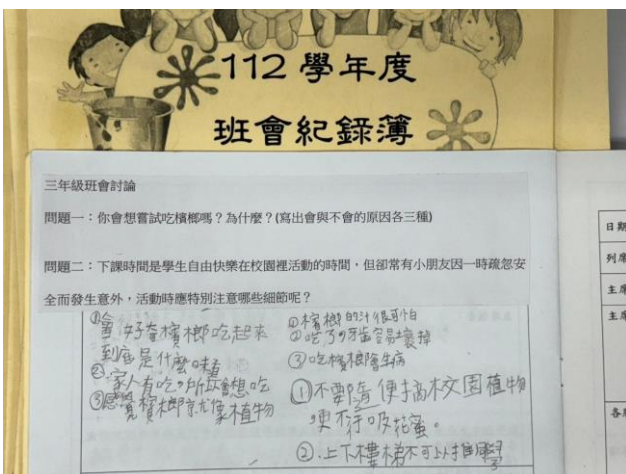 112 學年度
班會紀錄簿
三年級班會討論
問題一：你會想嘗試吃檳榔嗎？為什麼？(寫出會與不會的原因各三種)
問題二：下課時間是學生自由快樂在校園裡活動的時間，但卻常有小朋友因一時疏忽安
全而發生意外，活動時應特別注意哪些細節呢？
①會好奇檳榔吃起來
到底是什麼味道
②家人有吃，所以會想吃
③感覺檳榔就像植物
①檳榔的汁很可怕
②吃了牙齒容易壞掉
③吃檳榔會生病
①不要隨便摘校園植物
更不行吸花蜜。
②.上下樓梯不可以推同學
日期
列席
主席
主席
各